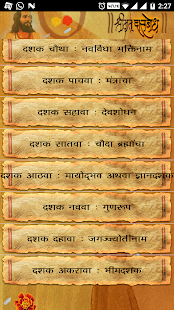 2:27
श्रीमत् दासबोध
दशक चौथा : नवविधा भक्तिनाम
दशक पाचवा : मंत्राचा
दशक सहावा : देवशोधन
दशक सातवा : चौदा ब्रह्मांचा
दशक आठवा : मायोद्भव अथवा ज्ञानदशक
दशक नववा : गुणरूप
दशक दहावा : जगज्ज्योतीनाम
दशक अकरावा : भीमदशक